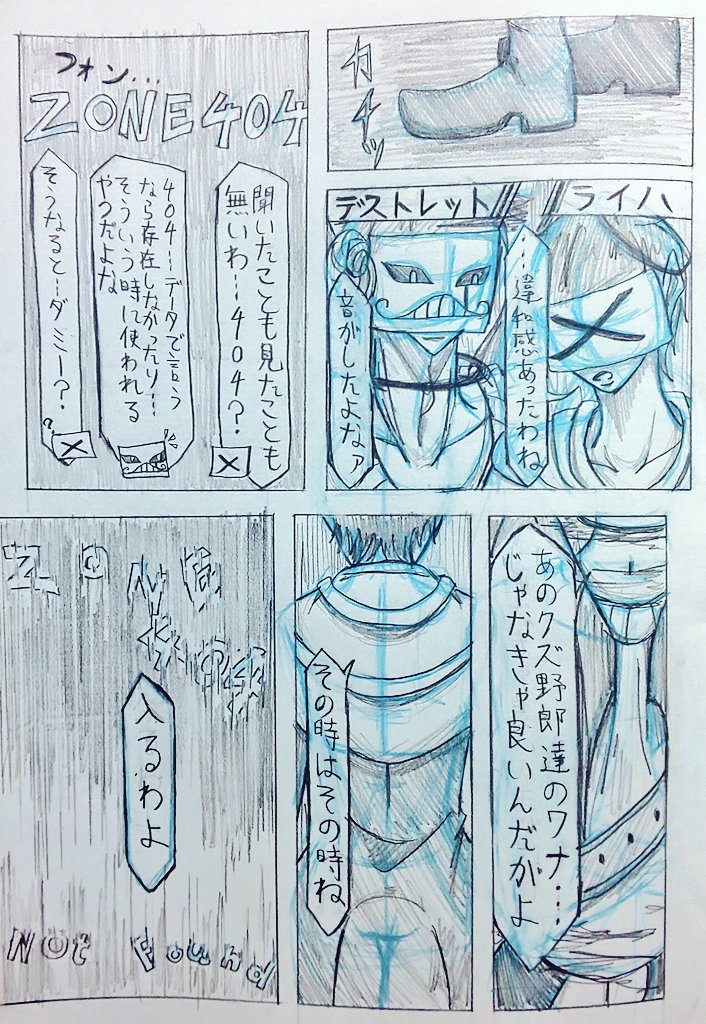 カチッ
ライハ
デストレット
…違和感あったわね
音がしたよなァ
フォン…
ZONE404
聞いたことも見たことも
無いわ…404?
404…データで言う
なら存在しなかったり…
そういう時に使われる
やつだよな
そうなると…ダミー?
あのクズ野郎達のワナ…
じゃなきゃ良いんだがよ
その時はその時ね
入るわよ
Not Found